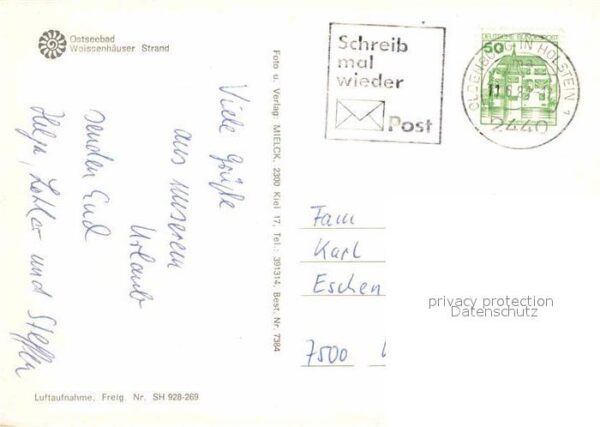 Ostseebad
Weissenhäuser Strand
Viele Grüße
aus unserem
Urlaub
senden Euch
Helga, Lothar und Steffen
Luftaufnahme, Freig. Nr. SH 928-269
Foto u. Verlag: MIELCK, 2300 Kiel 17, Tel.: 391314, Best. Nr. 7384
Schreib
mal
wieder
Post
50
DEUTSCHE BUNDESPOST
OLDENBURG IN HOLSTEIN 1
ma
2440
Fam
Karl
Eschen
7500
privacy protection
Datenschutz